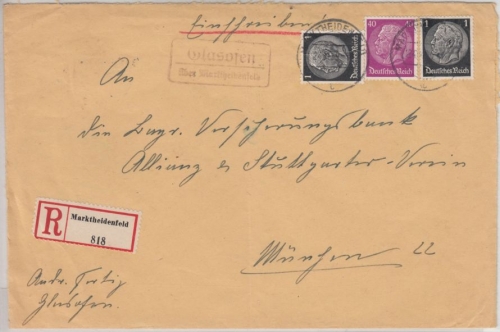 Einschreiben!
Glasofen
über Marktheidenfeld
MARKTHEIDENFELD
1 Deutsches Reich
40 Deutsches Reich
1 Deutsches Reich
An
die Bayr. Versicherungsbank
Allianz & Stuttgarter-Verein
München 22
R Marktheidenfeld
818
Andr. Fertig
Glasofen.